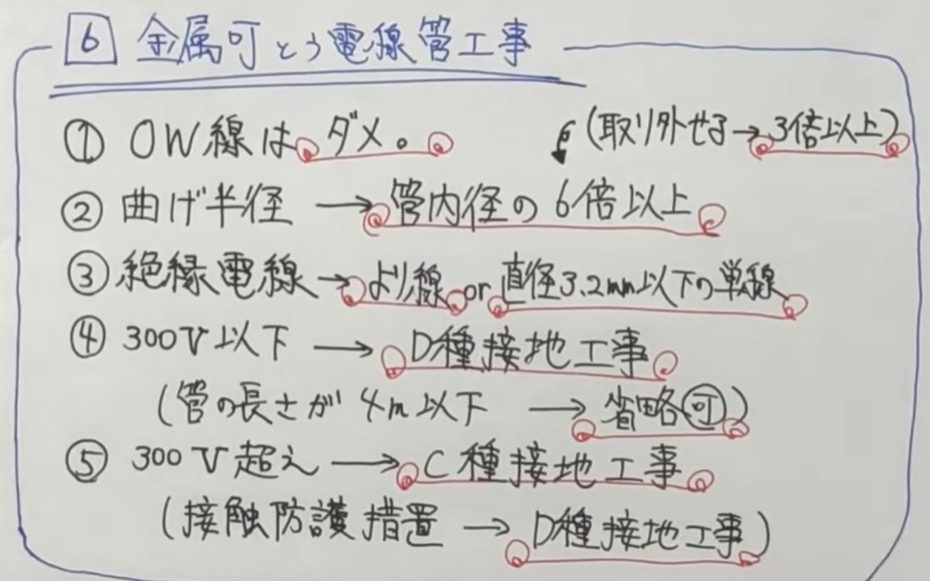 6 金属可とう電線管工事
① OW線はダメ。
(取り外せる→3倍以上)
② 曲げ半径 → 管内径の6倍以上
③ 絶縁電線→より線 or 直径3.2mm以下の単線
④ 300V以下 → D種接地工事
(管の長さが 4m以下 → 省略可)
⑤ 300V超え → C種接地工事
(接触防護措置 → D種接地工事)